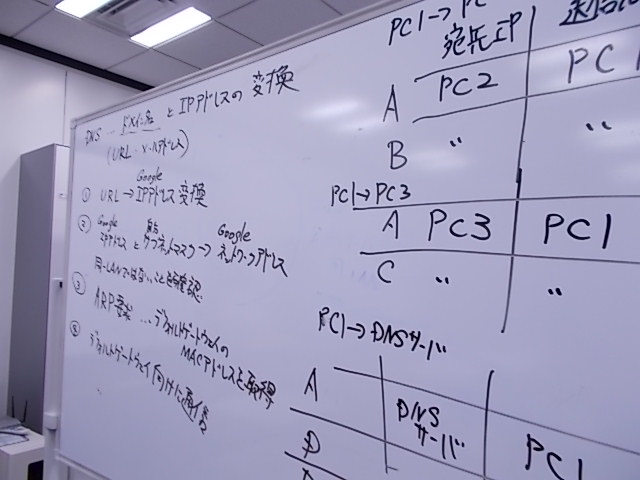 DNS … ドメイン名 と IPアドレスの 変換
(URL・メールアドレス)
Google
① URL → IPアドレス 変換
② Google IPアドレス と 自分 サブネットマスク → Google ネットワークアドレス
同一LANではないことを確認
③ ARP要求 … デフォルトゲートウェイの
MACアドレスを取得
④ デフォルトゲートウェイ向けに通信
PC1→PC
宛先IP
A PC2 PC1
B 〃 〃
PC1→PC3
A PC3 PC1
C 〃 〃
PC1→DNSサーバ
A
DNS
サーバ PC1
D